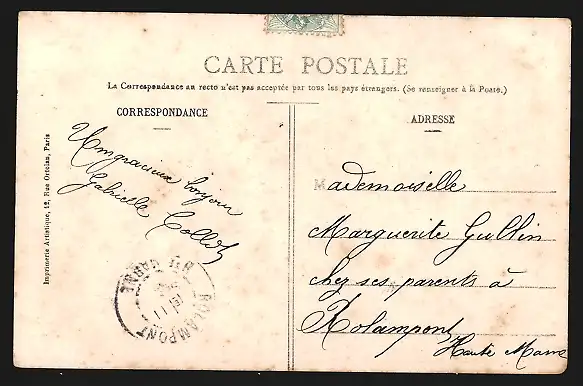 CARTE POSTALE
La Correspondance au recto n'est pas acceptée par tous les pays étrangers. (Se renseigner à la Poste.)
CORRESPONDANCE
ADRESSE
Imprimerie Artistique, 12, Rue Ortolan, Paris
Un gracieux bonjour
Gabrielle Collot
Mademoiselle
Marguerite Gullin
chez ses parents à
Rolampont
Haute Marne
ROLAMPONT
Hte MARNE